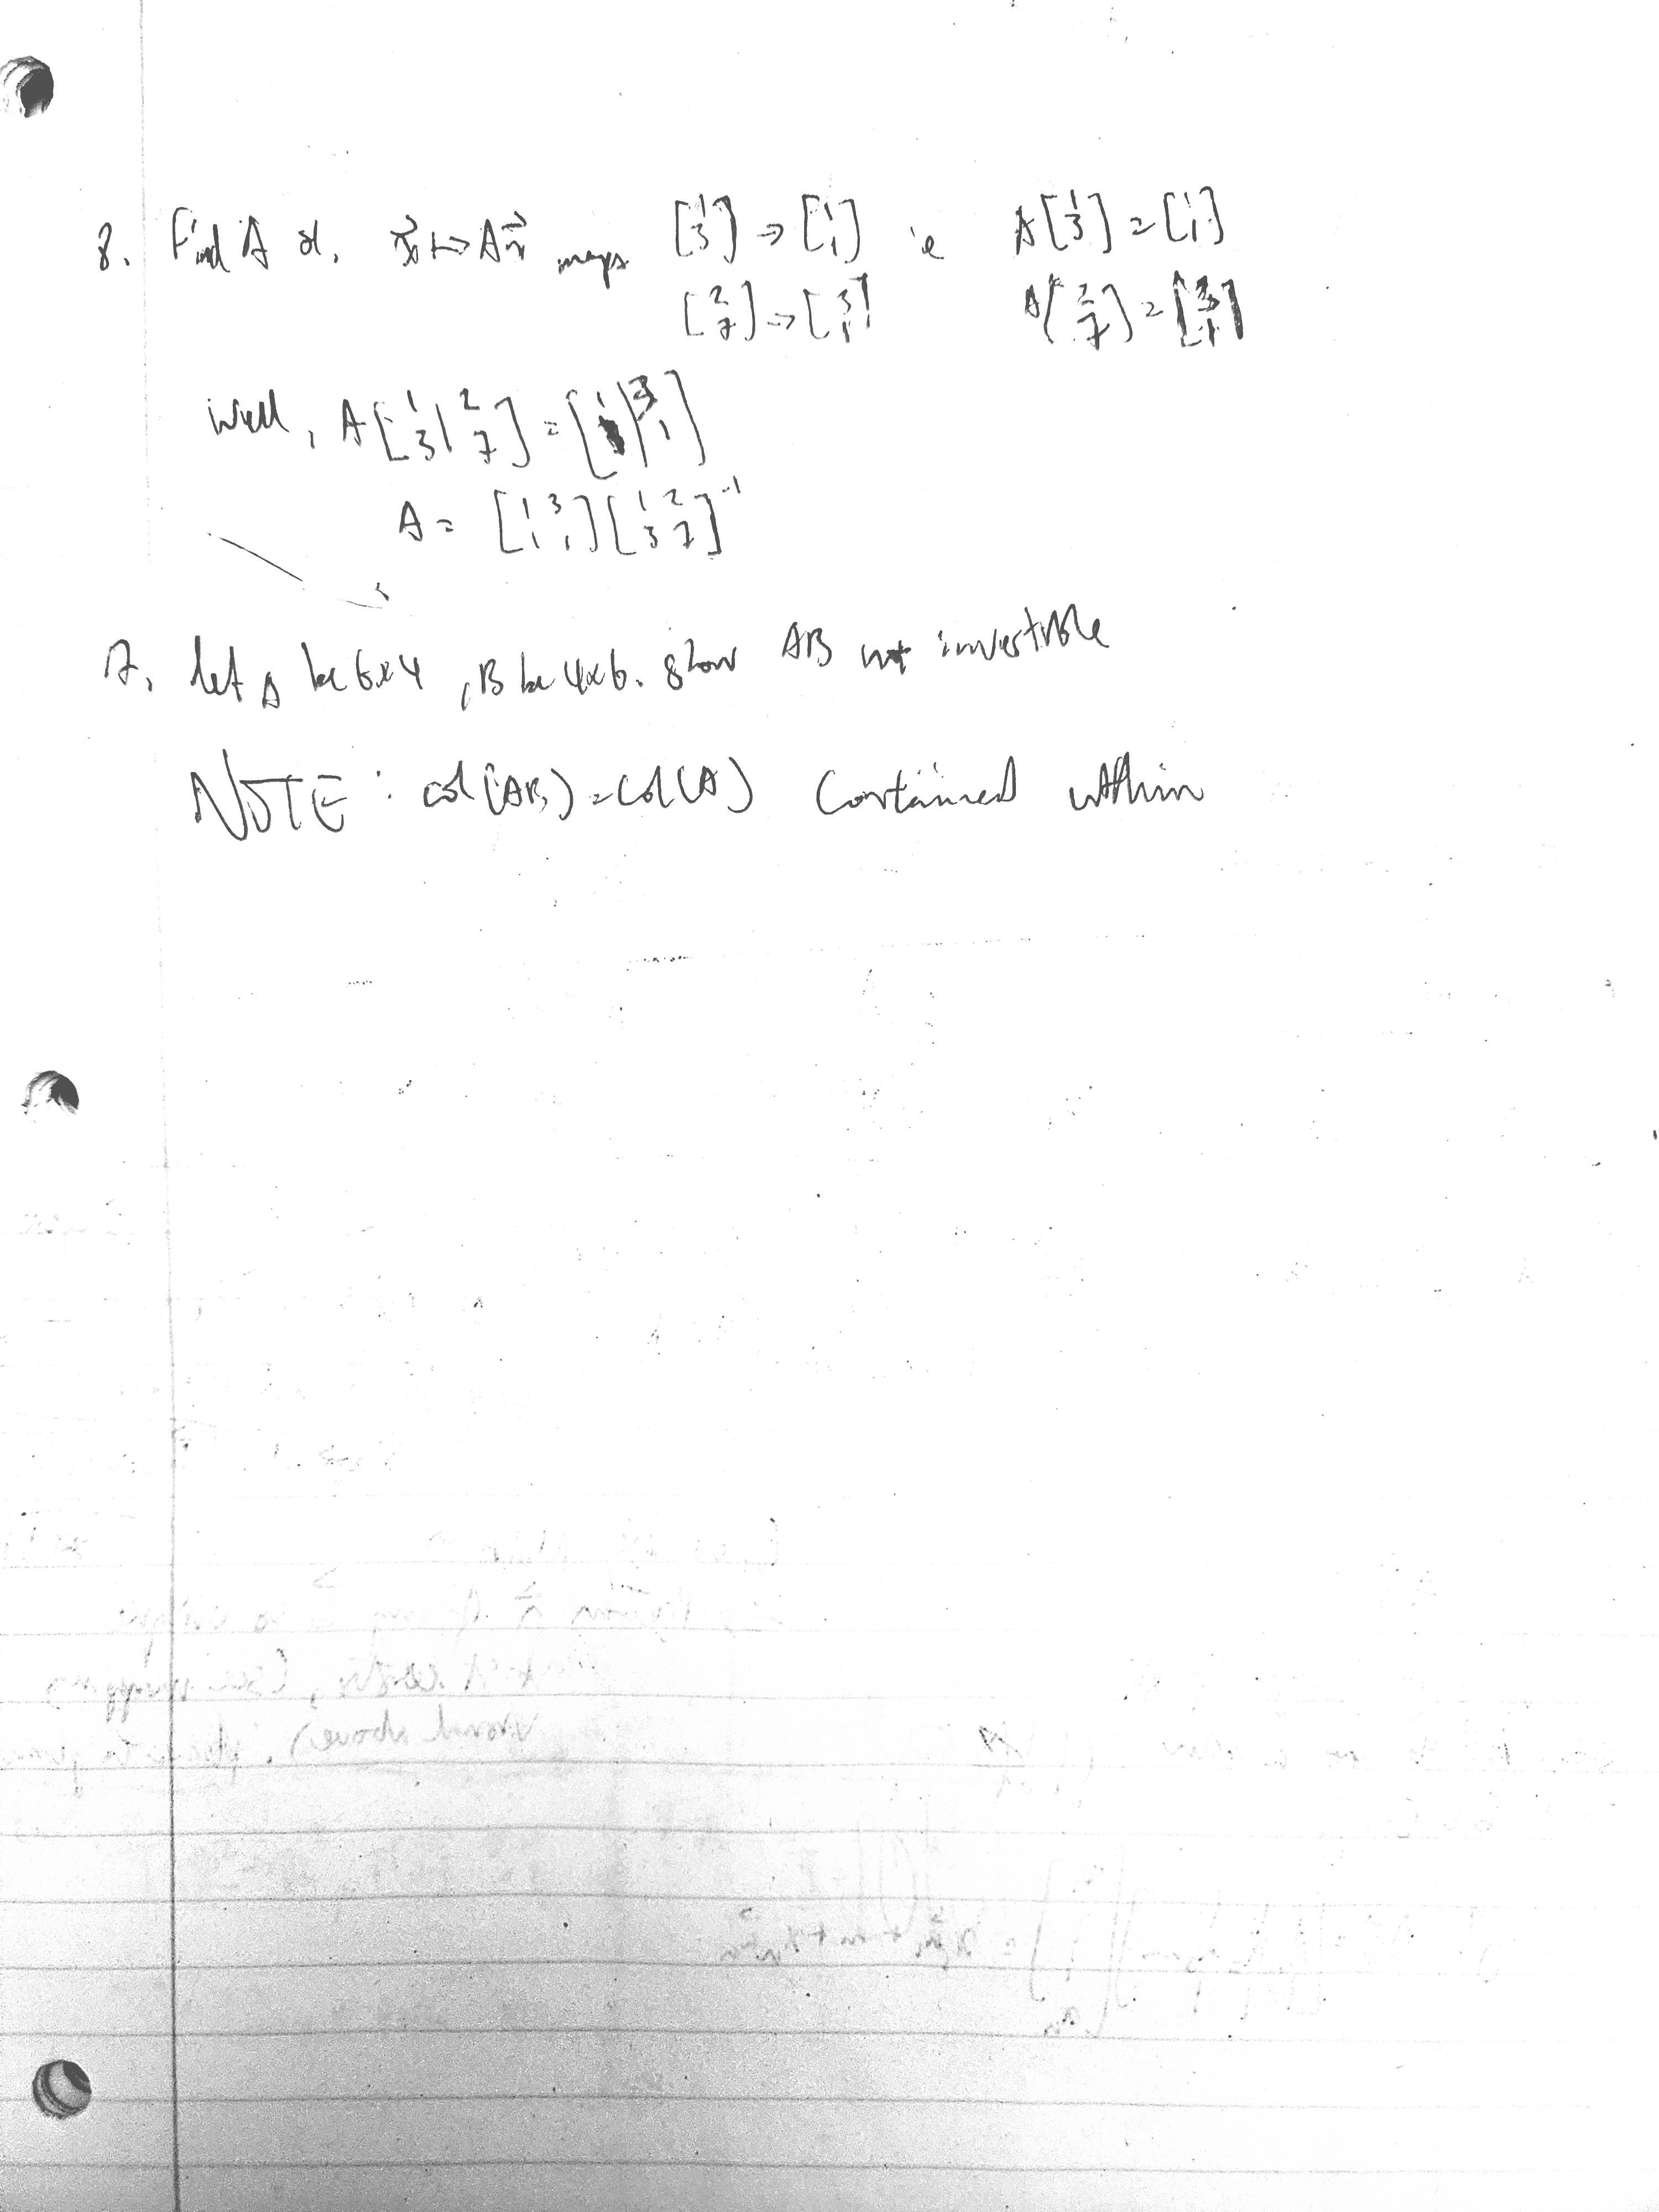 8. Find A st. x⃗ ↦ Ax⃗ maps [1 3] → [1 1] ie A[1 3] = [1 1]
[2 7] → [3 1] A[2 7] = [3 1]
Well, A[1 3 | 2 7] = [1 1 | 3 1]
A = [1 3 1 1][1 2 3 7]⁻¹
7. let A be 6x4, B be 4x6. show AB not invertible
NOTE: col(AB) = col(A) Contained within